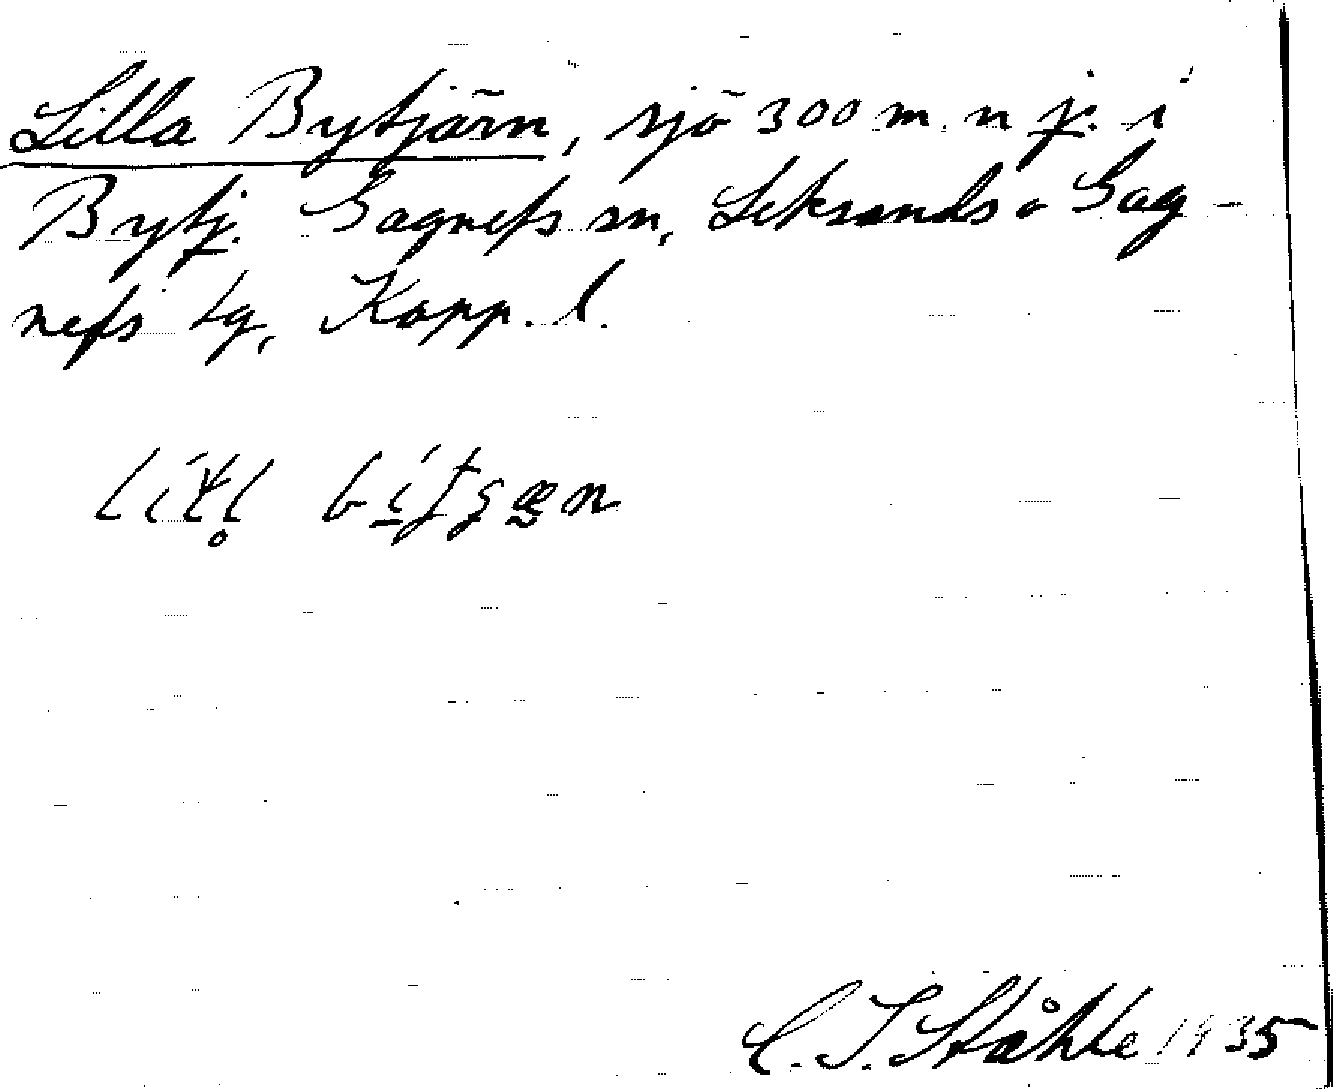 Lilla Bytjärn, sjö 300 m. n jr. i
Bytj. Gagnefs sn, Leksands o Gag-
nefs tg, Kopp. l.
C. I. Ståhle 1935